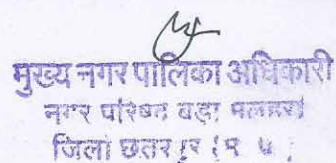 मुख्य नगर पालिका अधिकारी
नगर परिषद बड़ा मलहरा
जिला छतरपुर (म.